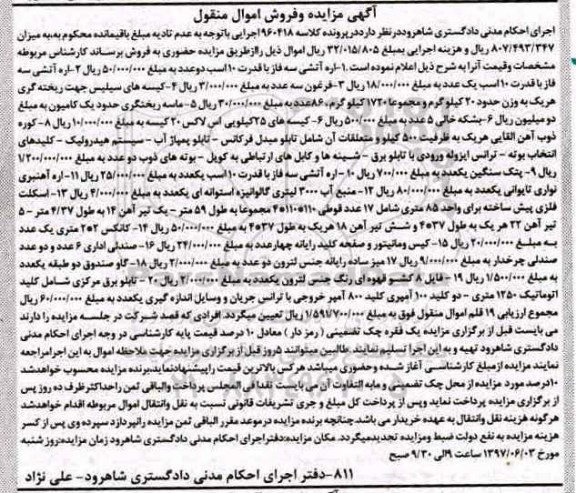 آگهی مزایده وفروش اموال منقول
اجرای احکام مدنی دادگستری شاهروددرنظر دارددرپرونده کلاسه ۹۶۰۴۱۸اجرایی باتوجه به عدم تادیه مبلغ باقیمانده محکوم به‌به میزان
۸۰۷/۴۹۳/۳۴۷ ریال و هزینه اجرایی بمبلغ ۳۲/۰۱۵/۸۰۵ ریال اموال ذیل راازطریق مزایده حضوری به فروش برساند کارشناس مربوطه
مشخصات وقیمت آنرا به شرح ذیل اعلام نموده است .۱-اره آتشی سه فاز با قدرت ۱۰ اسب دوعدد به مبلغ ۵۰/۰۰۰/۰۰۰ ریال ۲-اره آتشی سه
فاز با قدرت ۱۰ اسب یک عدد به مبلغ ۱۸/۰۰۰/۰۰۰ ریال ۳-فرغون سه عدد به مبلغ ۳/۰۰۰/۰۰۰ ریال ۴-کیسه های سیلیس جهت ریخته گری
هریک به وزن حدود ۲۰ کیلو گرم و مجموعا ۱۷۲۰ کیلو گرم ،۸۶عدد به مبلغ ۳۰/۰۰۰/۰۰۰ ریال ۵-ماسه ریختگری حدود یک کامیون به مبلغ
دو میلیون ریال ۶-بشکه خالی ۵ عدد به مبلغ ۵۰۰/۰۰۰ ریال ۷- کیسه های ۲۵کیلویی اس لاکس ۲۰ کیسه به مبلغ ۱۰/۰۰۰/۰۰۰ ریال ۸-کوره
ذوب آهن القایی هریک به ظرفیت ۵۰۰ کیلو و متعلقات آن شامل تابلو مبدل فرکانس - تابلو پمپاژ آب - سیستم هیدرولیک - کلیدهای
انتخاب بوته - ترانس ایزوله ورودی با تابلو برق - شینه ها و کابل های ارتباطی به کویل - بوته های ذوب دو عدد به مبلغ ۱/۲۰۰/۰۰۰/۰۰۰
ریال ۹-پتک سنگین یکعدد به مبلغ ۷۰۰/۰۰۰ ریال ۱۰-اره آتشی سه فاز با قدرت ۱۰ اسب یکعدد به مبلغ ۲۵/۰۰۰/۰۰۰ ریال ۱۱-اره آهنبری
نواری تایوانی یکعدد به مبلغ ۸۰/۰۰۰/۰۰۰ ریال ۱۲-منبع آب ۳۰۰۰ لیتری گالوانیزه استوانه ای یکعدد به مبلغ ۴/۰۰۰/۰۰۰ ریال ۱۳- اسکلت
فلزی پیش ساخته برای واحد ۸۵ متری شامل ۱۷ عدد قوطی مجموعا به طول ۵۹ متر - یک تیر آهن ۱۴ به طول ۴/۳۷ متر - ۵
تیر آهن ۲۲ هر یک به طول و شش تیر آهن ۱۸ هریک به طول به مبلغ ۵۰/۰۰۰/۰۰۰ ریال ۱۴- کانکس ۲*۲ متری یک عدد
به مبلغ ۲۰/۰۰۰/۰۰۰ ریال ۱۵- کیس ومانیتور و صفحه کلید رایانه چهارعدد به مبلغ ۲۴/۰۰۰/۰۰۰ ریال ۱۶- صندلی اداری ۶ عدد و دو عدد
صندلی چرخدار به مبلغ ۹/۰۰۰/۰۰۰ ریال ۱۷ میز ساده رایانه جنس لترون دو عدد به مبلغ ۲/۰۰۰/۰۰۰ ریال ۱۸- گاو صندوق دو طبقه یکعدد
به مبلغ ۱/۵۰۰/۰۰۰ ریال ۱۹ - فایل ۸ کشو قهوه ای رنگ جنس لترون یکعدد به مبلغ ۲/۰۰۰/۰۰۰ ریال ۲۰ - تابلو برق مرکزی شامل کلید
اتوماتیک ۱۲۵۰ متری - دو کلید ۱۰۰ آمپری کلید ۸۰۰ آمپر خروجی با ترانس جریان و وسایل اندازه گیری یکعدد به مبلغ ۶۰/۰۰۰/۰۰۰ ریال
مجموع ارزیابی ۱۹ قلم اموال منقول فوق به مبلغ ۱/۵۹۱/۷۰۰/۰۰۰ ریال تعیین میگردد. افرادی که قصد شرکت در جلسه مزایده را دارند
می بایست قبل از برگزاری مزایده یک فقره چک تضمینی ( رمز دار ) معادل ۱۰ درصد قیمت پایه کارشناسی در وجه اجرای احکام مدنی
دادگستری شاهرود تهیه و به این اجرا تسلیم نمایند .طالبین میتوانند ۵روز قبل از برگزاری مزایده جهت ملاحظه اموال به این اجرامراجعه
نمایند مزایده ازمبلغ کارشناسی آغاز شده وحضوری میباشد هرکس بالاترین قیمت راپیشنهادنماید،برنده مزایده محسوب خواهدشد
۱۰درصد مورد مزایده از محل چک تضمینی و مابه التفاوت آن می بایست نقدا فی المجلس پرداخت والباقی ثمن راحداکثرظرف ده روز پس
از برگزاری مزایده پرداخت نماید وپس از پرداخت کل مبلغ و جری تشریفات قانونی نسبت به نقل وانتقال اموال مربوطه اقدام خواهدشد
هرگونه هزینه نقل وانتقال به عهده خریدار می باشد.چنانچه برنده مزایده درموعد مقرر الباقی ثمن مزایده رانپردازد سپرده وی پس از کسر
هزینه مزایده به نفع دولت ضبط ومزایده تجدیدمیگردد. مکان مزایده:دفتراجرای احکام مدنی دادگستری شاهرود زمان مزایده:روز شنبه
مورخ ۱۳۹۷/۰۶/۰۳ ساعت ۹الی ۹/۳۰ صبح
۸۱۱-دفتر اجرای احکام مدنی دادگستری شاهرود- علی نژاد